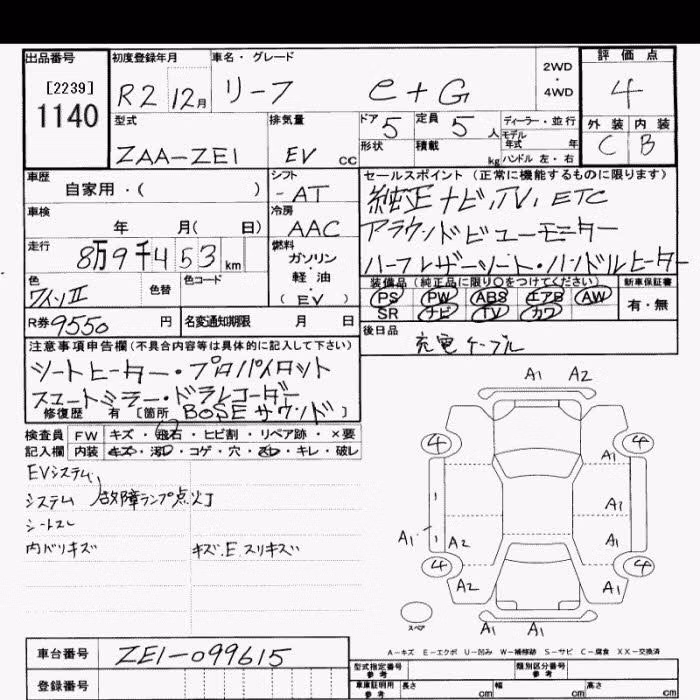 出品番号 初度登録年月 車名・グレード 2WD・4WD 評価点
[2239] 1140 R2 12月 リーフ e+G 4
型式 排気量 ドア 5 定員 5人 ディーラー・並行 外装 内装
ZAA-ZE1 EV CC 形状 積載 kg モデル年式 年 ハンドル 左・右 C B
車歴 シフト セールスポイント(正常に機能するものに限ります)
自家用・( ) -AT 純正ナビ,TV,ETC
車検 冷房 アラウンドビューモニター
年 月( 日) AAC ハーフレザーシート・ハンドルヒーター
走行 8万9千453km 燃料 ガソリン・軽油(EV)
装備品(純正品に限り○をつけてください) 新車保証書
色 色替 色コード PS PW ABS エアB AW 有・無
ワインII SR ナビ TV カワ
R券 9550円 名変通知期限 月 日 後日品
充電ケーブル
注意事項申告欄(不具合内容等は具体的に記入して下さい)
シートヒーター・プロパイロット
スマートミラー・ドラレコーダー
修復歴 有 [箇所 BOSEサウンド]
検査員 FW キズ・飛石・ヒビ割・リペア跡・×要
記入欄 内装 キズ・汚れ・コゲ・穴・スレ・キレ・破レ
EVシステム,
システム故障ランプ点灯
シートスレ
内バリキズ キズ.E.スリキズ
A1 A2
4 4
A1
A1
A1 A2 A1
4 4
A2 A1
スペア
A1 A1
A-キズ E-エクボ U-凹み W-補修跡 S-サビ C-腐食 XX-交換済
車台番号 ZE1-099615
登録番号
型式指定番号 参考 類別区分番号 参考
車庫証明用 参考 長さ cm 幅 cm 高さ cm